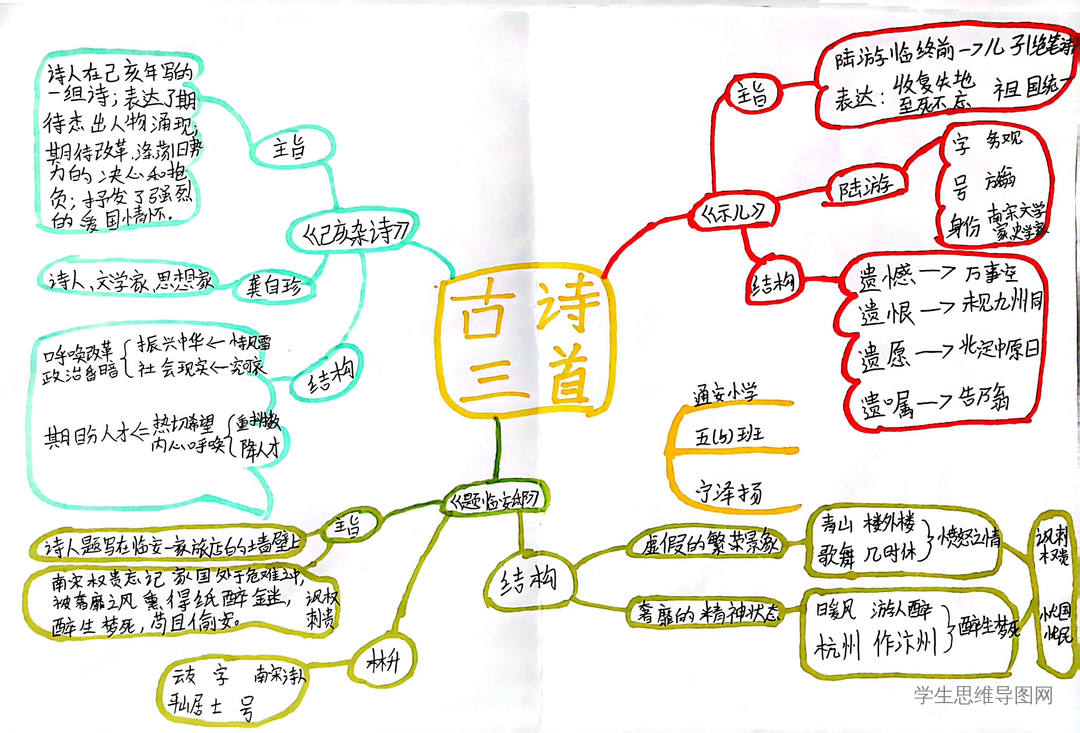 古诗
三首
《示儿》
主旨
陆游临终前→儿子绝笔诗
表达：收复失地 祖国统一
至死不忘
陆游
字 务观
号 放翁
身份 南宋文学
家史学家
结构
遗憾→万事空
遗恨→未见九州同
遗愿→北定中原日
遗嘱→告乃翁
通安小学
五(5)班
宁泽扬
《己亥杂诗》
主旨
诗人在己亥年写的
一组诗；表达了期
待杰出人物涌现；
期待改革，涤荡旧势
力的决心和抱
负；抒发了强烈
的爱国情怀。
龚自珍
诗人、文学家、思想家
结构
呼唤改革 振兴中华←恃风雷
政治昏暗 社会现实←究可哀
期盼人才⇐热切希望 重抖擞
内心呼唤 降人才
《题临安邸》
主旨
诗人题写在临安一家旅店的墙壁上
南宋权贵忘记 家国处于危难之中，
被奢靡之风 熏得纸醉金迷，讽权
醉生梦死，苟且偷安。 刺贵
林升
云友 字 南宋诗人
平山居士 号
结构
虚假的繁荣景象
青山 楼外楼
歌舞 几时休
愤怒之情
奢靡的精神状态
日暖风 游人醉
杭州 作汴州
醉生梦死
讽刺
权贵
忧国
忧民
学生思维导图网